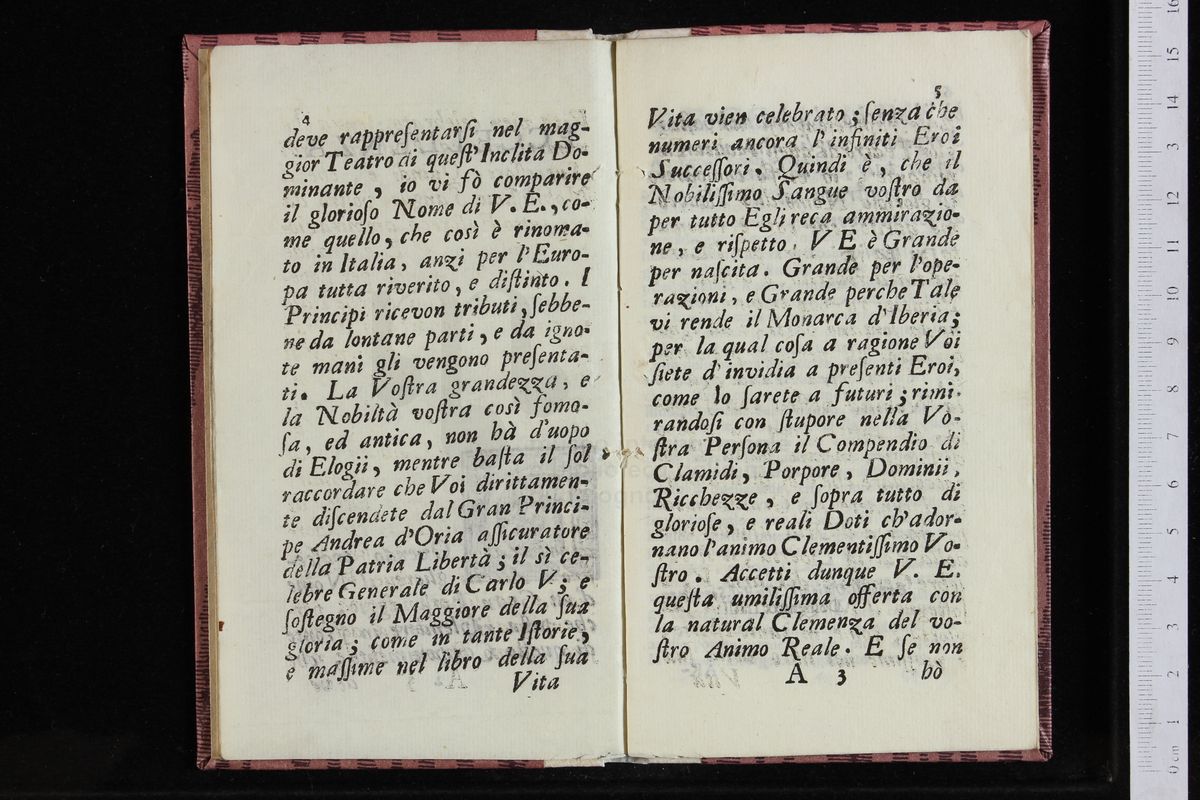 4
deve rappreſentarſi nel mag-
gior Teatro di queſt'Inclita Do-
minante, io vi fò comparire
il glorioſo Nome di V. E., co-
me quello, che così è rinoma-
to in Italia, anzi per l'Euro-
pa tutta riverito, e diſtinto. I
Principi ricevon tributi, ſebbe-
ne da lontane parti, e da igno-
te mani gli vengono preſenta-
ti. La Voſtra grandezza, e
la Nobiltà voſtra così fomo-
ſa, ed antica, non hà d'uopo
di Elogii, mentre baſta il ſol
raccordare che Voi dirittamen-
te diſcendete dal Gran Princi-
pe Andrea d'Oria aſſicuratore
della Patria Libertà; il sì ce-
lebre Generale di Carlo V; e
ſoſtegno il Maggiore della ſua
gloria; come in tante Iſtorie,
e maſſime nel libro della ſua
Vita
5
Vita vien celebrato; ſenza che
numeri ancora l'infiniti Eroi
Succeſſori. Quindi è, che il
Nobiliſſimo Sangue voſtro da
per tutto Egli reca ammirazio-
ne, e riſpetto. V E è Grande
per naſcita. Grande per l'ope-
razioni, e Grande perche Tale
vi rende il Monarca d'Iberia;
per la qual coſa a ragione Voi
ſiete d'invidia a preſenti Eroi,
come lo ſarete a futuri; rimi-
randoſi con ſtupore nella Vo-
ſtra Perſona il Compendio di
Clamidi, Porpore, Dominii,
Ricchezze, e ſopra tutto di
glorioſe, e reali Doti ch'ador-
nano l'animo Clementiſſimo Vo-
ſtro. Accetti dunque V. E.
queſta umiliſſima offerta con
la natural Clemenza del vo-
ſtro Animo Reale. E ſe non
A 3 hò
0 cm 1 2 3 4 5 6 7 8 9 10 11 12 3 14 15 16